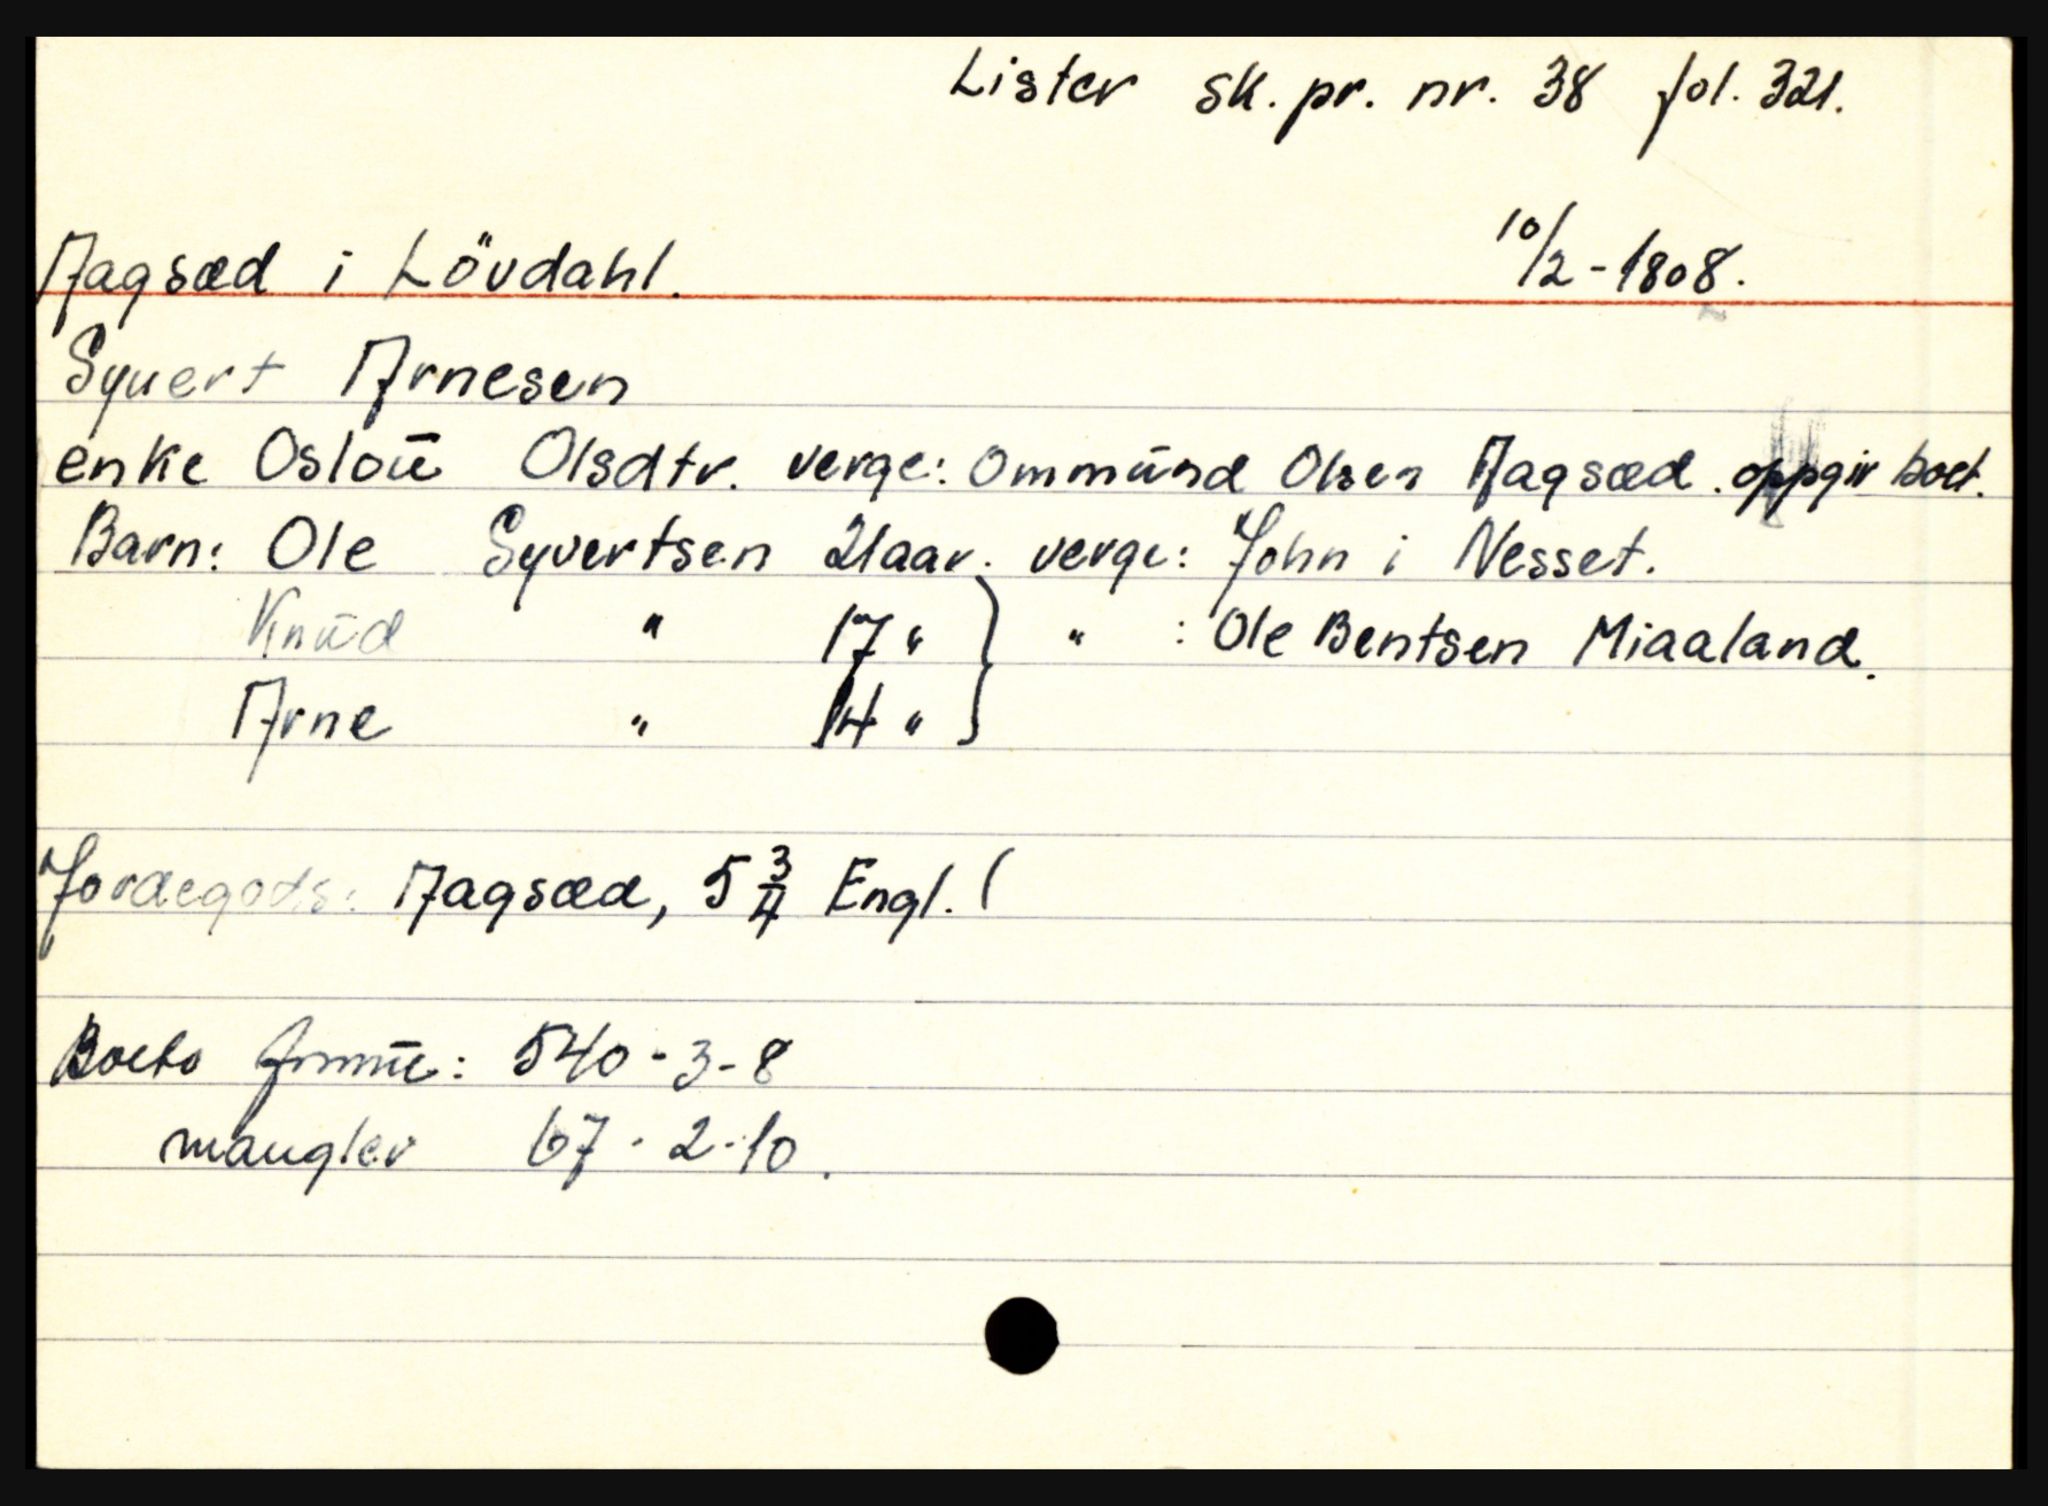 Lister sk. pr. nr. 38 fol. 321.
Aagsæd i Lövdahl. 10/2-1808.
Syvert Arnesen
enke Osloū Olsdtr. verge: Ommūnd Olsen Aagsæd. oppgir boet.
Barn: Ole Syvertsen 21aar. verge: John i Nesset.
Knūd " 17 " } " : Ole Bentsen Miaaland.
Arne " 14 " }
Jordegods: Aagsæd, 5 3/4 Engl. (
Boets 540-3-8
mangler 67-2-10.